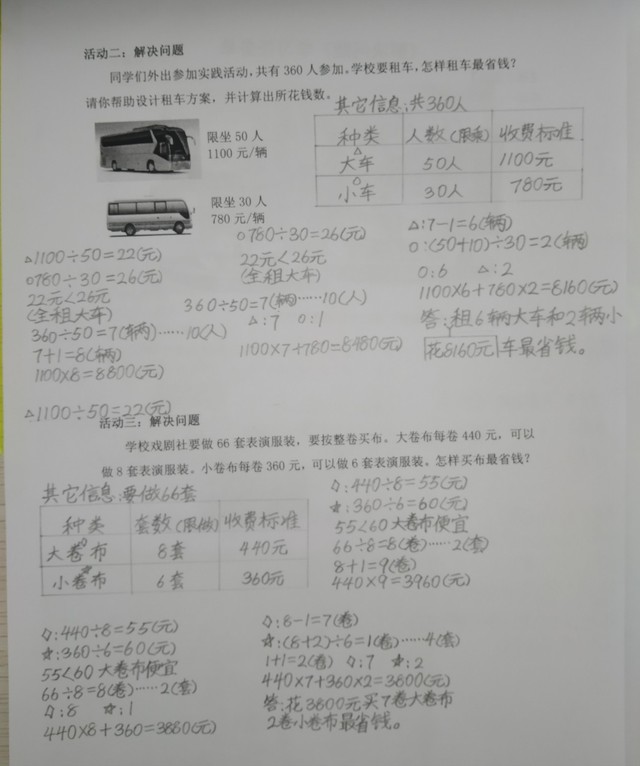 活动二：解决问题
同学们外出参加实践活动，共有 360 人参加。学校要租车，怎样租车最省钱？
请你帮助设计租车方案，并计算出所花钱数。
其它信息:共360人
限坐 50 人
1100 元/辆
种类 人数(限乘) 收费标准
△
大车 50人 1100元
○
小车 30人 780元
限坐 30 人
780 元/辆
△1100÷50=22(元)
○780÷30=26(元)
22元<26元
(全租大车)
360÷50=7(辆)……10(人)
7+1=8(辆)
1100×8=8800(元)
○780÷30=26(元)
22元<26元
(全租大车)
360÷50=7(辆)……10(人)
△:7 ○:1
1100×7+780=8480(元)
△:7-1=6(辆)
○:(50+10)÷30=2(辆)
○:6 △:2
1100×6+780×2=8160(元)
答:租6辆大车和2辆小
花8160元 车最省钱。
△1100÷50=22(元)
活动三：解决问题
学校戏剧社要做 66 套表演服装，要按整卷买布。大卷布每卷 440 元，可以
做 8 套表演服装。小卷布每卷 360 元，可以做 6 套表演服装。怎样买布最省钱？
其它信息:要做66套
种类 套数(限做) 收费标准
大卷布 8套 440元
小卷布 6套 360元
☆:440÷8=55(元)
★:360÷6=60(元)
55<60 大卷布便宜
66÷8=8(卷)……2(套)
8+1=9(卷)
440×9=3960(元)
☆:440÷8=55(元)
★:360÷6=60(元)
55<60 大卷布便宜
66÷8=8(卷)……2(套)
☆:8 ★:1
440×8+360=3880(元)
☆:8-1=7(卷)
★:(8+2)÷6=1(卷)……4(套)
1+1=2(卷) ☆:7 ★:2
440×7+360×2=3800(元)
答:花3800元买7卷大卷布
2卷小卷布最省钱。